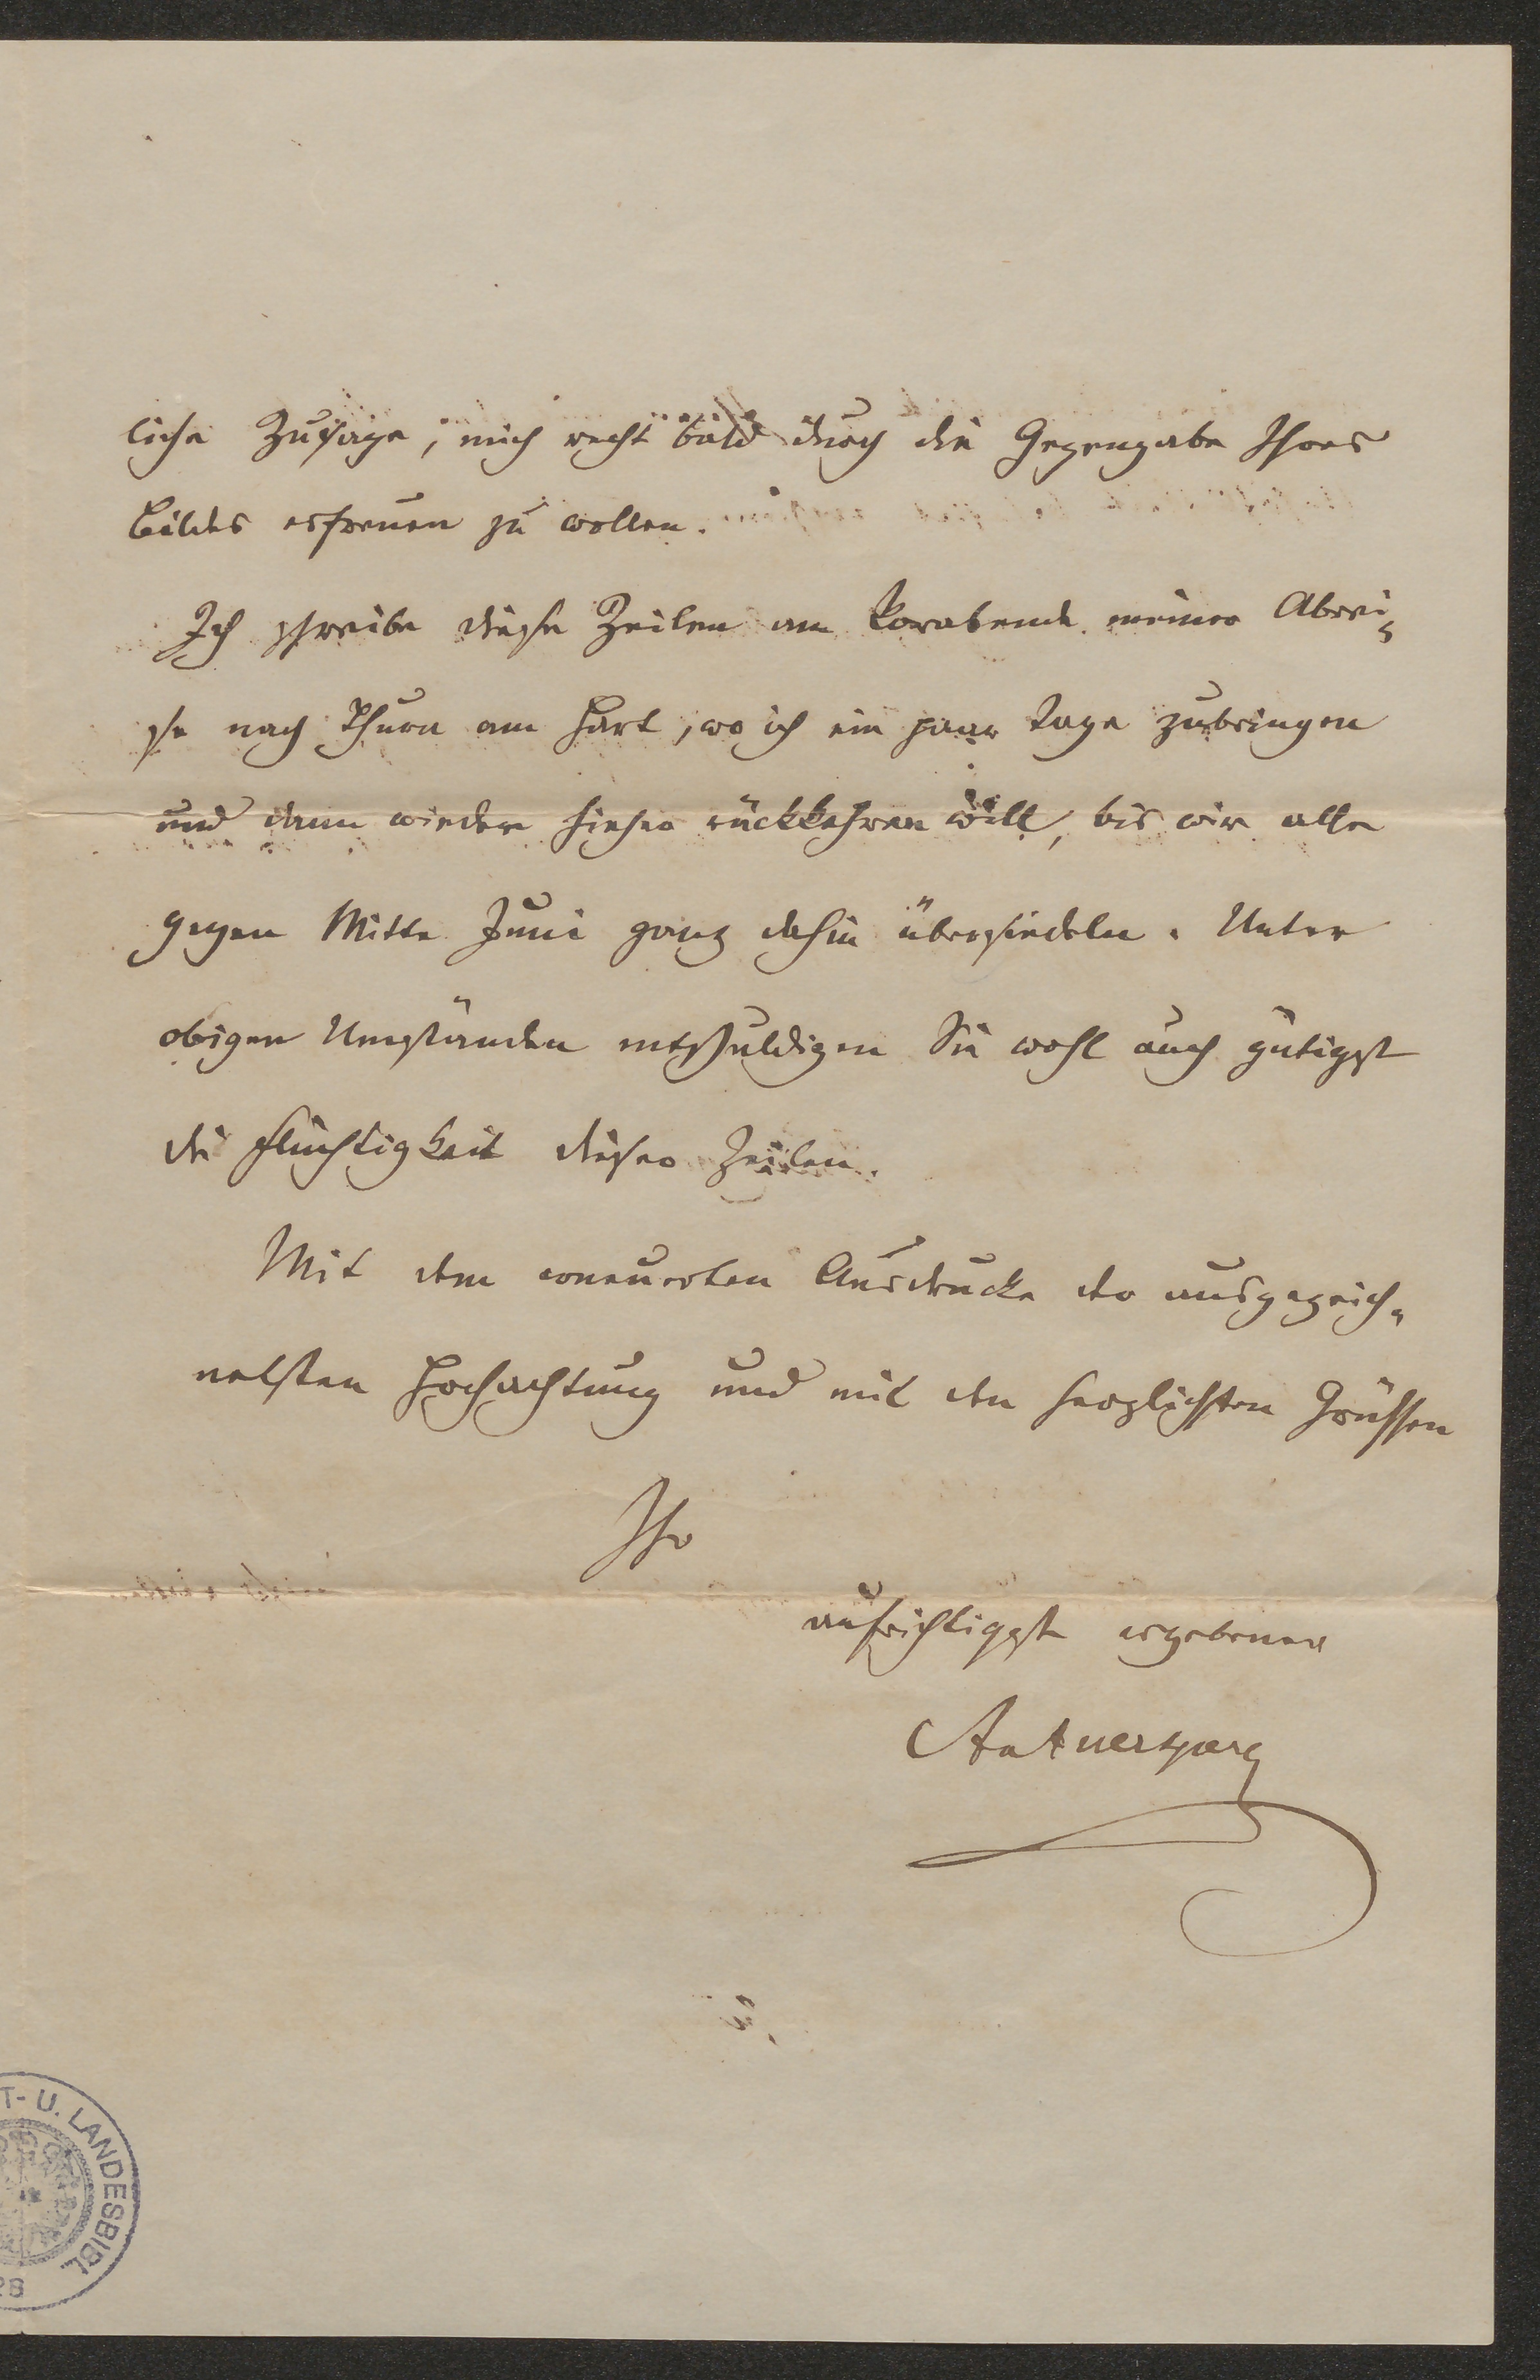 liche Zusage, mich recht bald durch die Gegengabe Ihres
Bildes erfreuen zu wollen.
Ich schreibe diese Zeilen am Vorabende meiner Abrei-
se nach Thurn am Hart, wo ich ein paar Tage zubringen
und dann wieder hieher rückkehren will, bis wir alle
gegen Mitte Juni ganz dahin übersiedeln. Unter
obigen Umständen entschuldigen Sie wohl auch gütigst
die Flüchtigkeit dieser Zeilen.
Mit dem erneuerten Ausdrucke der ausgezeich-
netsten Hochachtung und mit den herzlichsten Grüssen
Ihr
aufrichtigst ergebener
AntAuersperg
T- U. LANDESBIBL
28